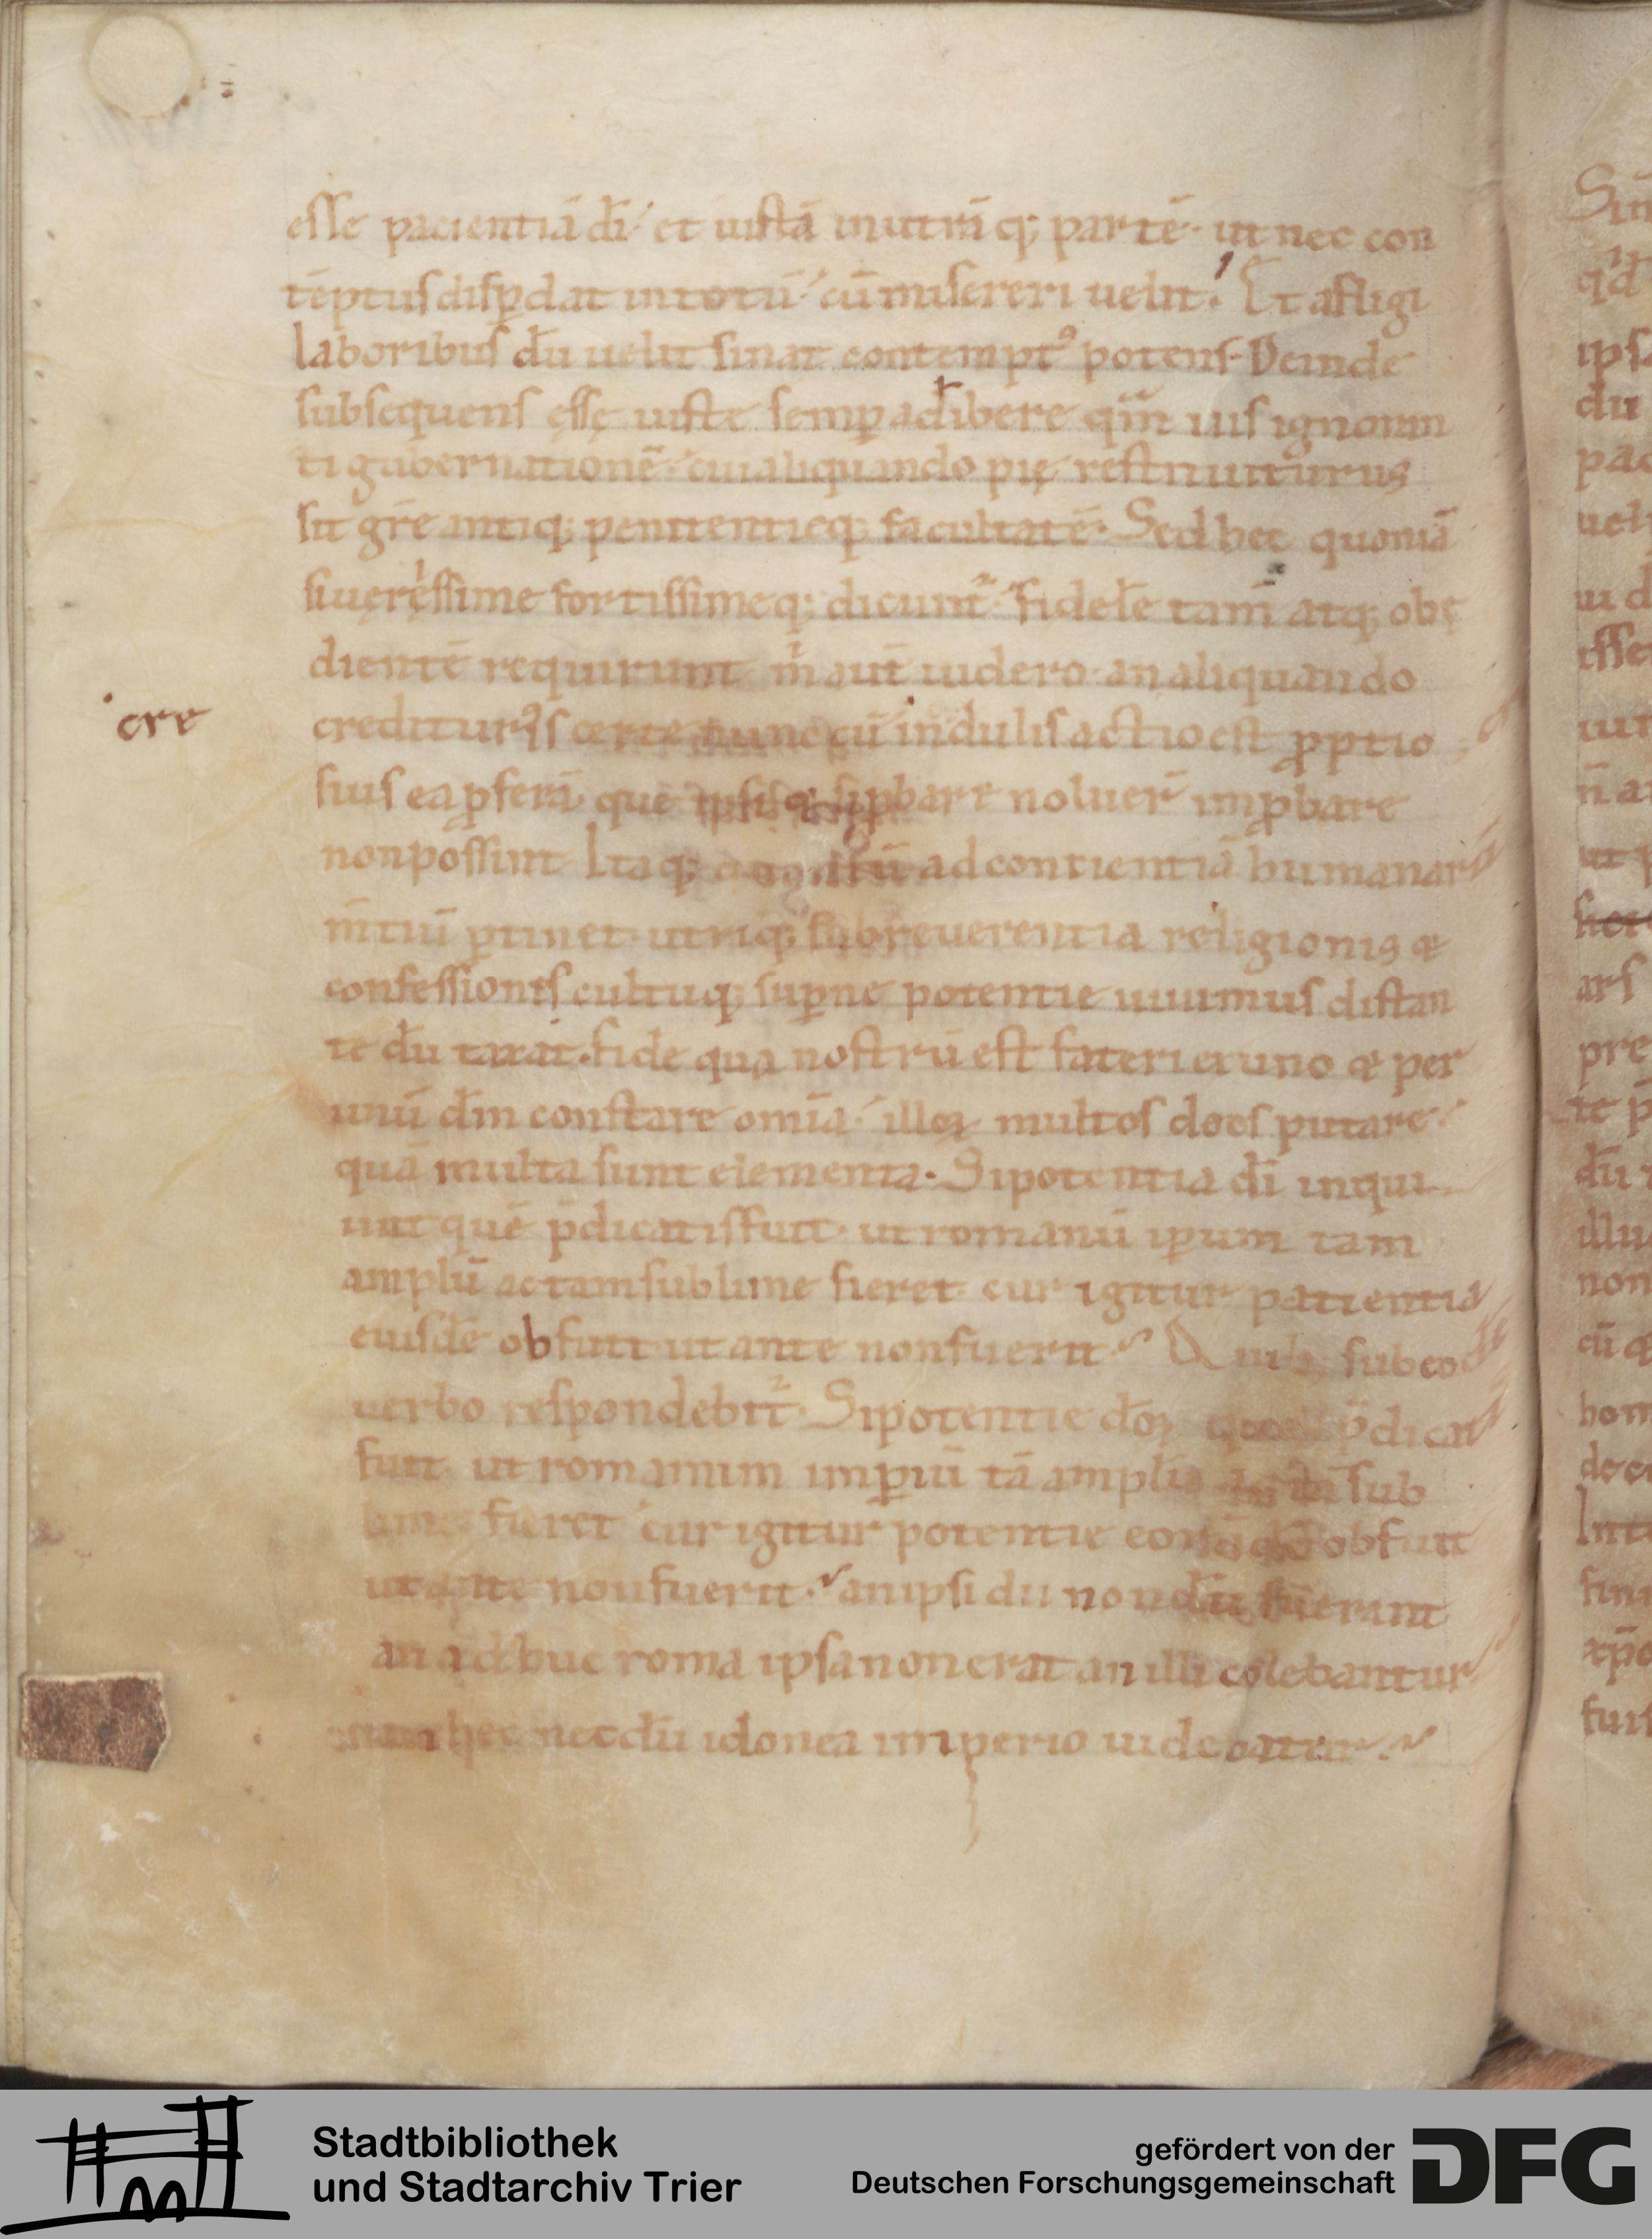 esse pacientiā dī et iustā inutrāq; partē ut nec con
tēptus disꝑdat intotū cū misereri uelit. Et afligi
laboribus dū uelit sinat contemptꝰ potens. Deinde
subsequens ęssę iuste semꝑ adibere qm̄ iusignoran
ti gubernationē cui aliquando pię restituiturus
sit gr̄e antiq; penitentieq; facultatē. Sed hec quoniā
si uerẹssime fortissimeq; dicunt̄ fidelē tam̄ atq; obe
dientē requirunt m̄ aut̄ uidero an aliquando
crediturꝰ certe nunc cū indulis actio est ꝓptio
cre
siuis ea ꝓferā que ipsi si ꝓbare noluer̄ imꝓbare
non possint Itaq; ad contientiā humanarū
m̄tiū ꝑtinet utriq; sub reuerentia religionis &
confessionis cultuq; suꝑne potentie uiuimus distan
te dū taxat. fide qua nostrū est fateri ex uno & per
unū dm̄ constare omīa illoꝝ multos deos putare
quā multa sunt elementa. Si potentia dī inqui
unt quē p̄dicatis fuit ut romanū iꝑium tam
amplū ac tam sublime fieret cur igitur patientia
eiusdē obfuit ut ante non fuerit Quib; sub eodē
uerbo respondebit̄. Si potentie dōꝝ quos p̄dicat
fuit ut romanum imꝑiū tā amplū sub
lime fieret cur igitur potentie obfuit
ut ante non fuerit. an ipsi dii nondū fuerant
an adhuc roma ipsa non erat an illi colebantur
an hec necdū idonea imperio uidebatur.
Stadtbibliothek
und Stadtarchiv Trier
gefördert von der
Deutschen Forschungsgemeinschaft
DFG